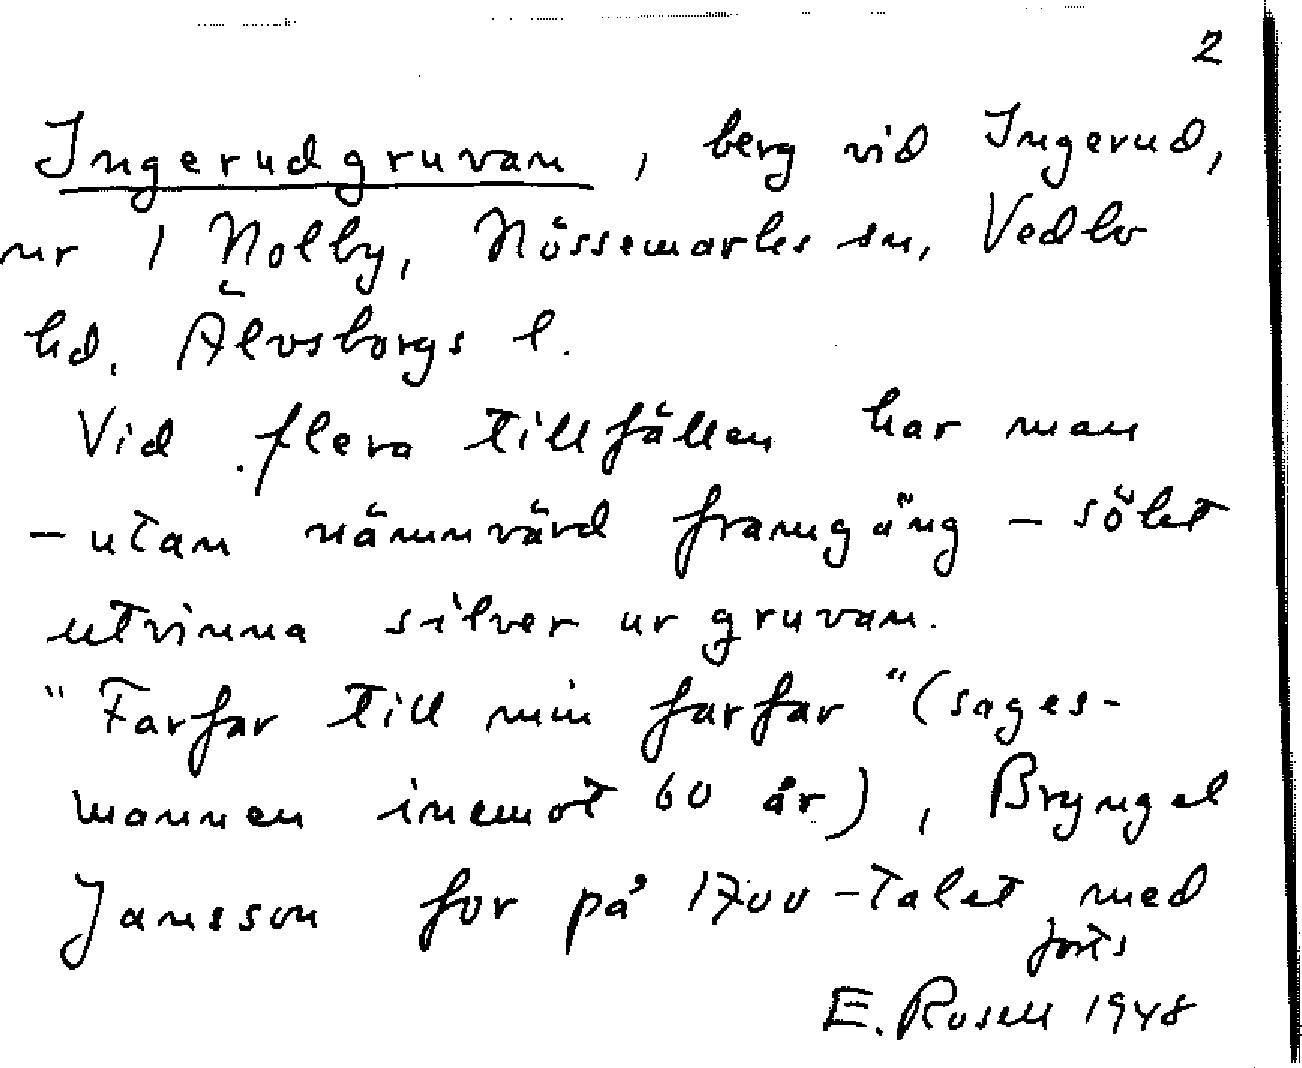 2
Ingerudgruvan, berg vid Ingerud,
nr 1 Nolby, Nössemarks sn, Vedbo
hd. Älvsborgs l.
Vid flera tillfällen har man
- utan nämnvärd framgång - sökt
utvinna silver ur gruvan.
"Farfar till min farfar" (sages-
mannen inemot 60 år), Bryngel
Jansson for på 1700-talet med
forts
E. Rosell 1948